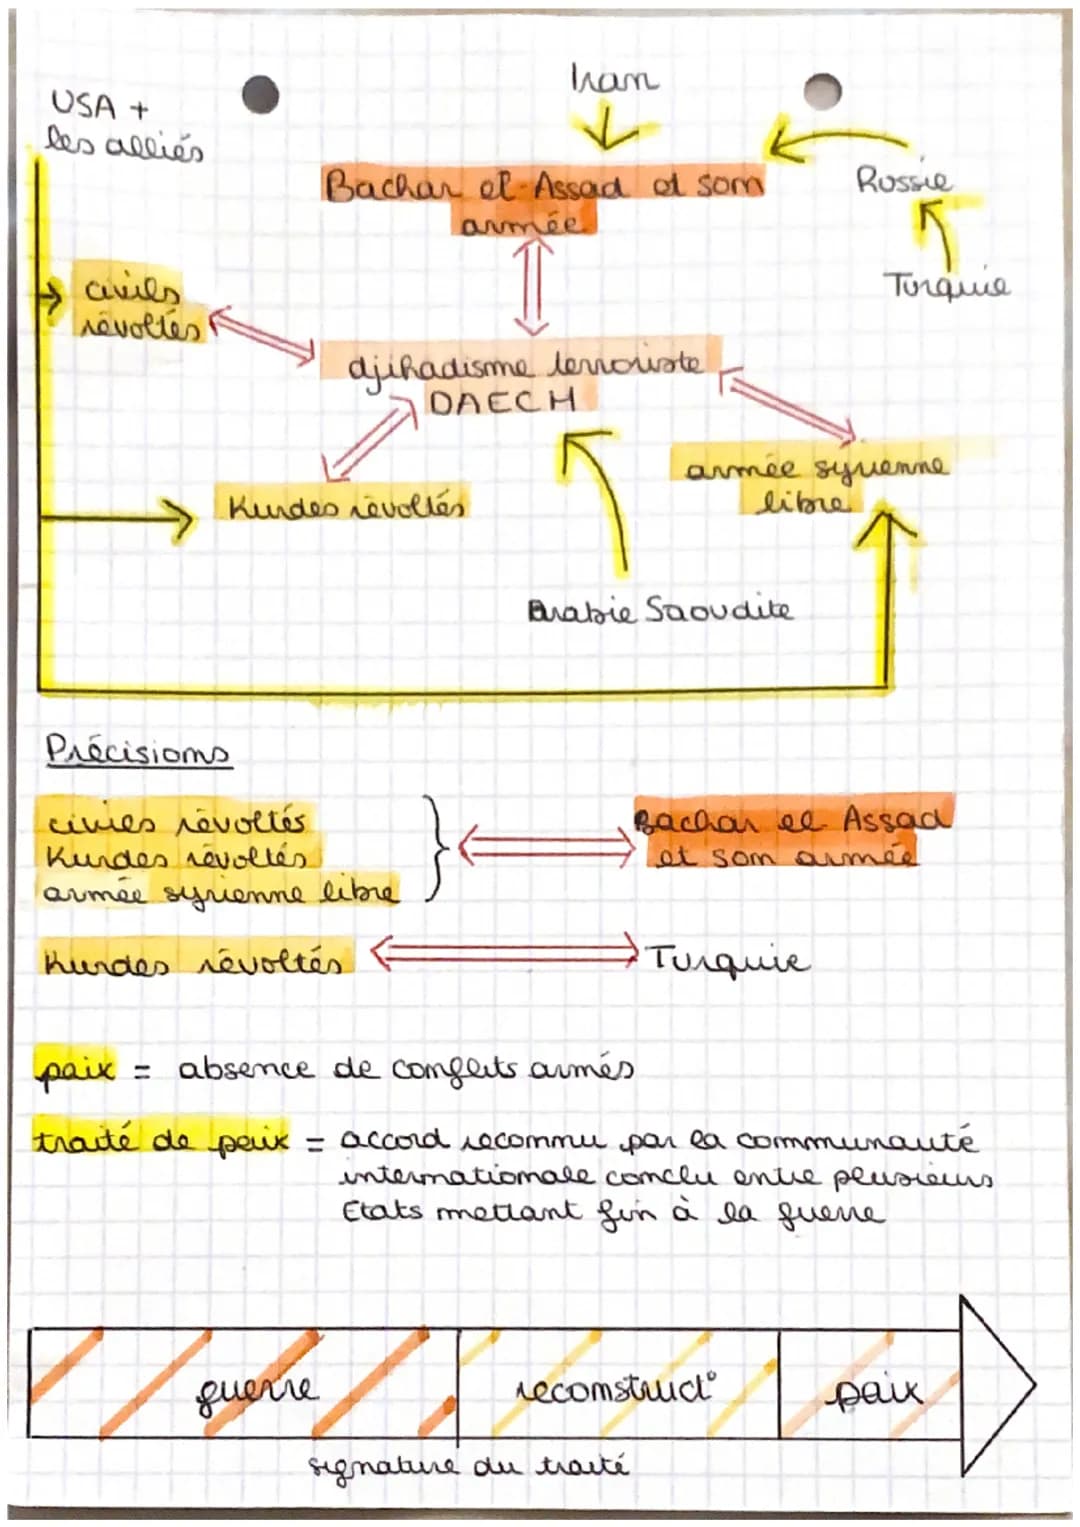 USA +
les alliés
Iran
Russie
Bachar el-Assad et son
armée
Turquie
civils
révoltés
djihadisme terroriste
DAECH
armée syrienne
libre
Kurdes révoltés
Arabie Saoudite
Précisions
civies révoltés
Kurdes révoltés
armée syrienne libre
Bachar el Assad
et son armée
Kurdes révoltés
Turquie
paix = absence de conflits armés
traité de paix = accord reconnu par la communauté
internationale conclu entre plusieurs
Etats mettant fin à la guerre
guerre
reconstruct°
paix
signature du traité